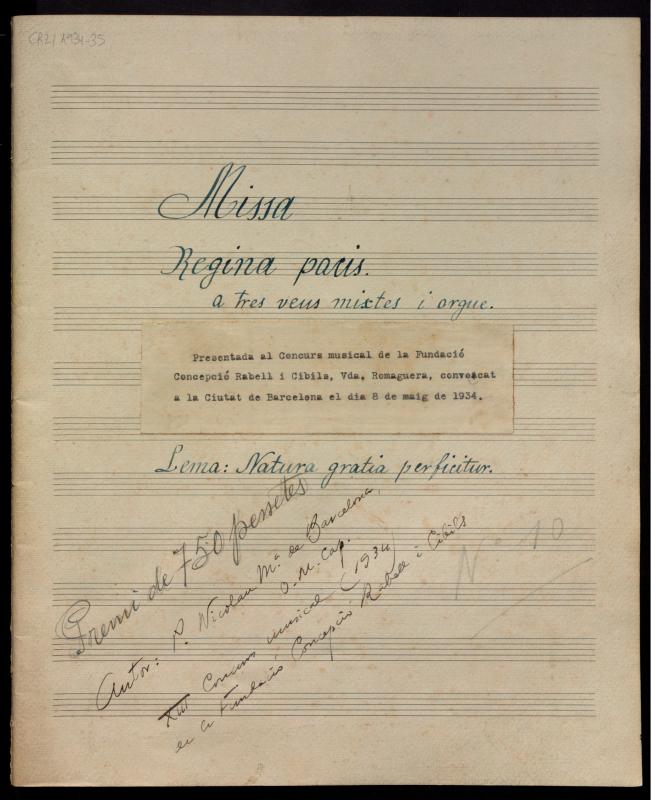 CR2/1934-35
Missa
Regina pacis.
a tres veus mixtes i orgue.
Presentada al Concurs musical de la Fundació
Concepció Rabell i Cibils, Vda. Romaguera, convocat
a la Ciutat de Barcelona el dia 8 de maig de 1934.
Lema: Natura gratia perficitur.
Premi de 750 pessetes
Autor: P. Nicolau Mª de Barcelona,
O.M.Cap.
XIII Concurs musical (1934)
Fundació Concepció Rabell i Cibils
Nº 10